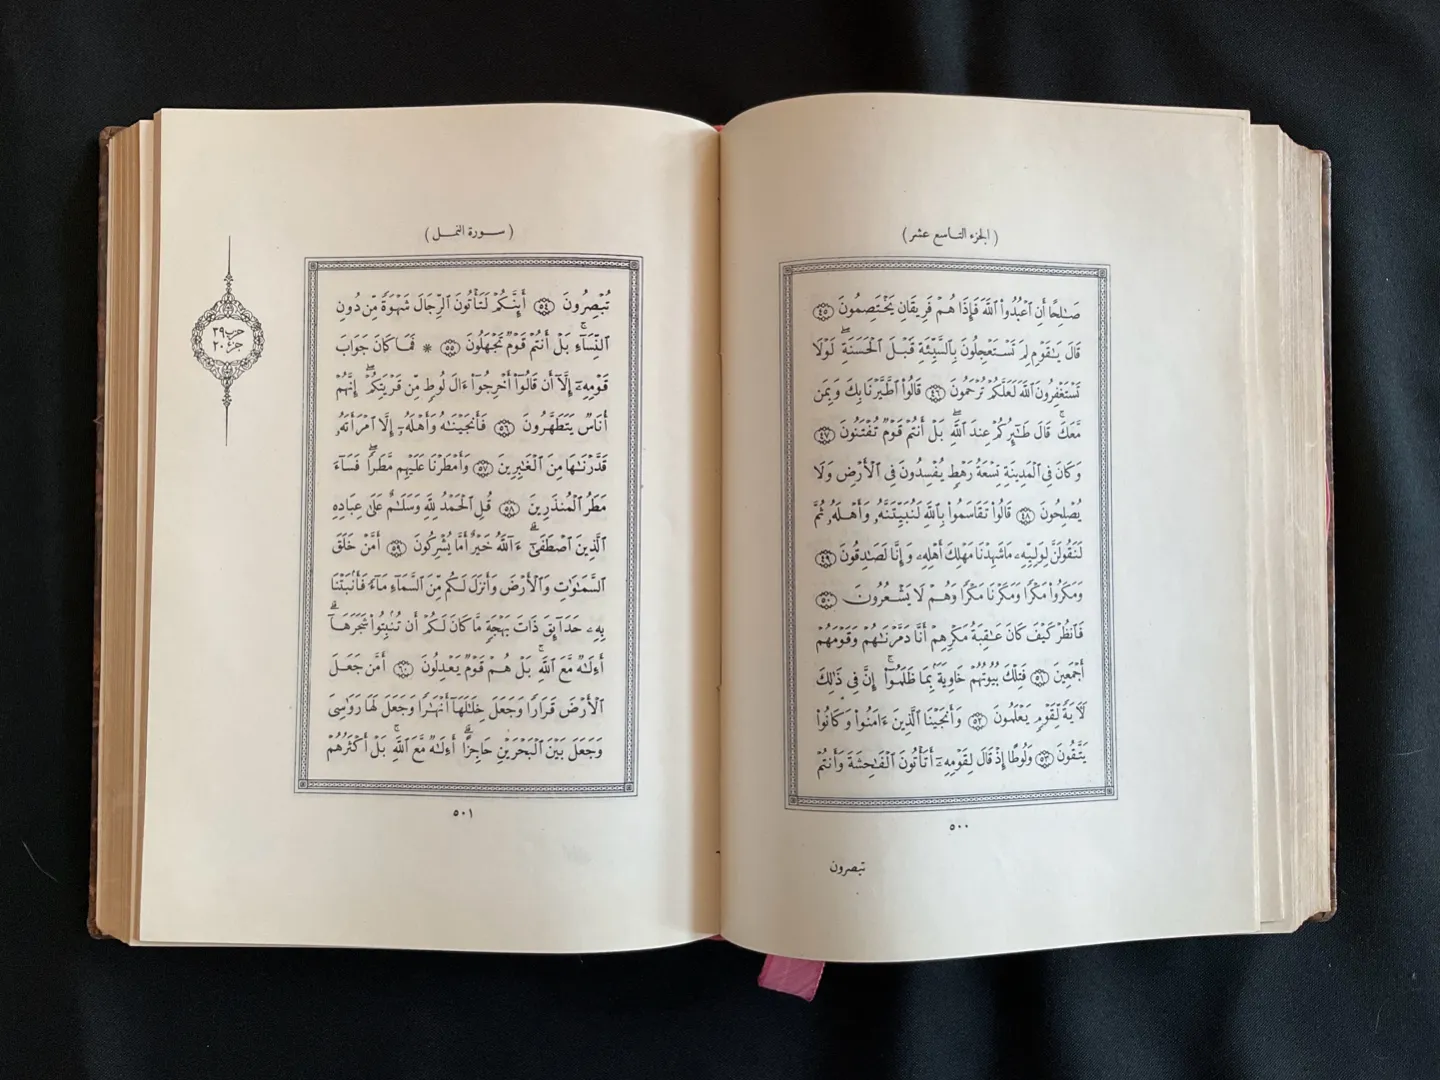 (الجزء التاسع عشر)
صَٰلِحًا أَنِ ٱعْبُدُوا۟ ٱللَّهَ فَإِذَا هُمْ فَرِيقَانِ يَخْتَصِمُونَ ٤٥
قَالَ يَٰقَوْمِ لِمَ تَسْتَعْجِلُونَ بِٱلسَّيِّئَةِ قَبْلَ ٱلْحَسَنَةِۖ لَوْلَا
تَسْتَغْفِرُونَ ٱللَّهَ لَعَلَّكُمْ تُرْحَمُونَ ٤٦ قَالُوا۟ ٱطَّيَّرْنَا بِكَ وَبِمَن
مَّعَكَۚ قَالَ طَٰٓئِرُكُمْ عِندَ ٱللَّهِۖ بَلْ أَنتُمْ قَوْمٌ تُفْتَنُونَ ٤٧
وَكَانَ فِى ٱلْمَدِينَةِ تِسْعَةُ رَهْطٍ يُفْسِدُونَ فِى ٱلْأَرْضِ وَلَا
يُصْلِحُونَ ٤٨ قَالُوا۟ تَقَاسَمُوا۟ بِٱللَّهِ لَنُبَيِّتَنَّهُۥ وَأَهْلَهُۥ ثُمَّ
لَنَقُولَنَّ لِوَلِيِّهِۦ مَا شَهِدْنَا مَهْلِكَ أَهْلِهِۦ وَإِنَّا لَصَٰدِقُونَ ٤٩
وَمَكَرُوا۟ مَكْرًا وَمَكَرْنَا مَكْرًا وَهُمْ لَا يَشْعُرُونَ ٥٠
فَٱنظُرْ كَيْفَ كَانَ عَٰقِبَةُ مَكْرِهِمْ أَنَّا دَمَّرْنَٰهُمْ وَقَوْمَهُمْ
أَجْمَعِينَ ٥١ فَتِلْكَ بُيُوتُهُمْ خَاوِيَةًۢ بِمَا ظَلَمُوٓا۟ۚ إِنَّ فِى ذَٰلِكَ
لَـَٔايَةً لِّقَوْمٍ يَعْلَمُونَ ٥٢ وَأَنجَيْنَا ٱلَّذِينَ ءَامَنُوا۟ وَكَانُوا۟
يَتَّقُونَ ٥٣ وَلُوطًا إِذْ قَالَ لِقَوْمِهِۦٓ أَتَأْتُونَ ٱلْفَٰحِشَةَ وَأَنتُمْ
٥٠٠
تبصرون
(سورة النمل)
تُبْصِرُونَ ٥٤ أَئِنَّكُمْ لَتَأْتُونَ ٱلرِّجَالَ شَهْوَةً مِّن دُونِ
ٱلنِّسَآءِۚ بَلْ أَنتُمْ قَوْمٌ تَجْهَلُونَ ٥٥ * فَمَا كَانَ جَوَابَ
قَوْمِهِۦٓ إِلَّآ أَن قَالُوٓا۟ أَخْرِجُوٓا۟ ءَالَ لُوطٍ مِّن قَرْيَتِكُمْۖ إِنَّهُمْ
أُنَاسٌ يَتَطَهَّرُونَ ٥٦ فَأَنجَيْنَٰهُ وَأَهْلَهُۥٓ إِلَّا ٱمْرَأَتَهُۥ
قَدَّرْنَٰهَا مِنَ ٱلْغَٰبِرِينَ ٥٧ وَأَمْطَرْنَا عَلَيْهِم مَّطَرًاۖ فَسَآءَ
مَطَرُ ٱلْمُنذَرِينَ ٥٨ قُلِ ٱلْحَمْدُ لِلَّهِ وَسَلَٰمٌ عَلَىٰ عِبَادِهِ
ٱلَّذِينَ ٱصْطَفَىٰٓۗ ءَآللَّهُ خَيْرٌ أَمَّا يُشْرِكُونَ ٥٩ أَمَّنْ خَلَقَ
ٱلسَّمَٰوَٰتِ وَٱلْأَرْضَ وَأَنزَلَ لَكُم مِّنَ ٱلسَّمَآءِ مَآءً فَأَنۢبَتْنَا
بِهِۦ حَدَآئِقَ ذَاتَ بَهْجَةٍ مَّا كَانَ لَكُمْ أَن تُنۢبِتُوا۟ شَجَرَهَآۗ
أَءِلَٰهٌ مَّعَ ٱللَّهِۚ بَلْ هُمْ قَوْمٌ يَعْدِلُونَ ٦٠ أَمَّن جَعَلَ
ٱلْأَرْضَ قَرَارًا وَجَعَلَ خِلَٰلَهَآ أَنْهَٰرًا وَجَعَلَ لَهَا رَوَٰسِىَ
وَجَعَلَ بَيْنَ ٱلْبَحْرَيْنِ حَاجِزًاۗ أَءِلَٰهٌ مَّعَ ٱللَّهِۚ بَلْ أَكْثَرُهُمْ
٥٠١
حزب ٣٩
جزء ٢٠